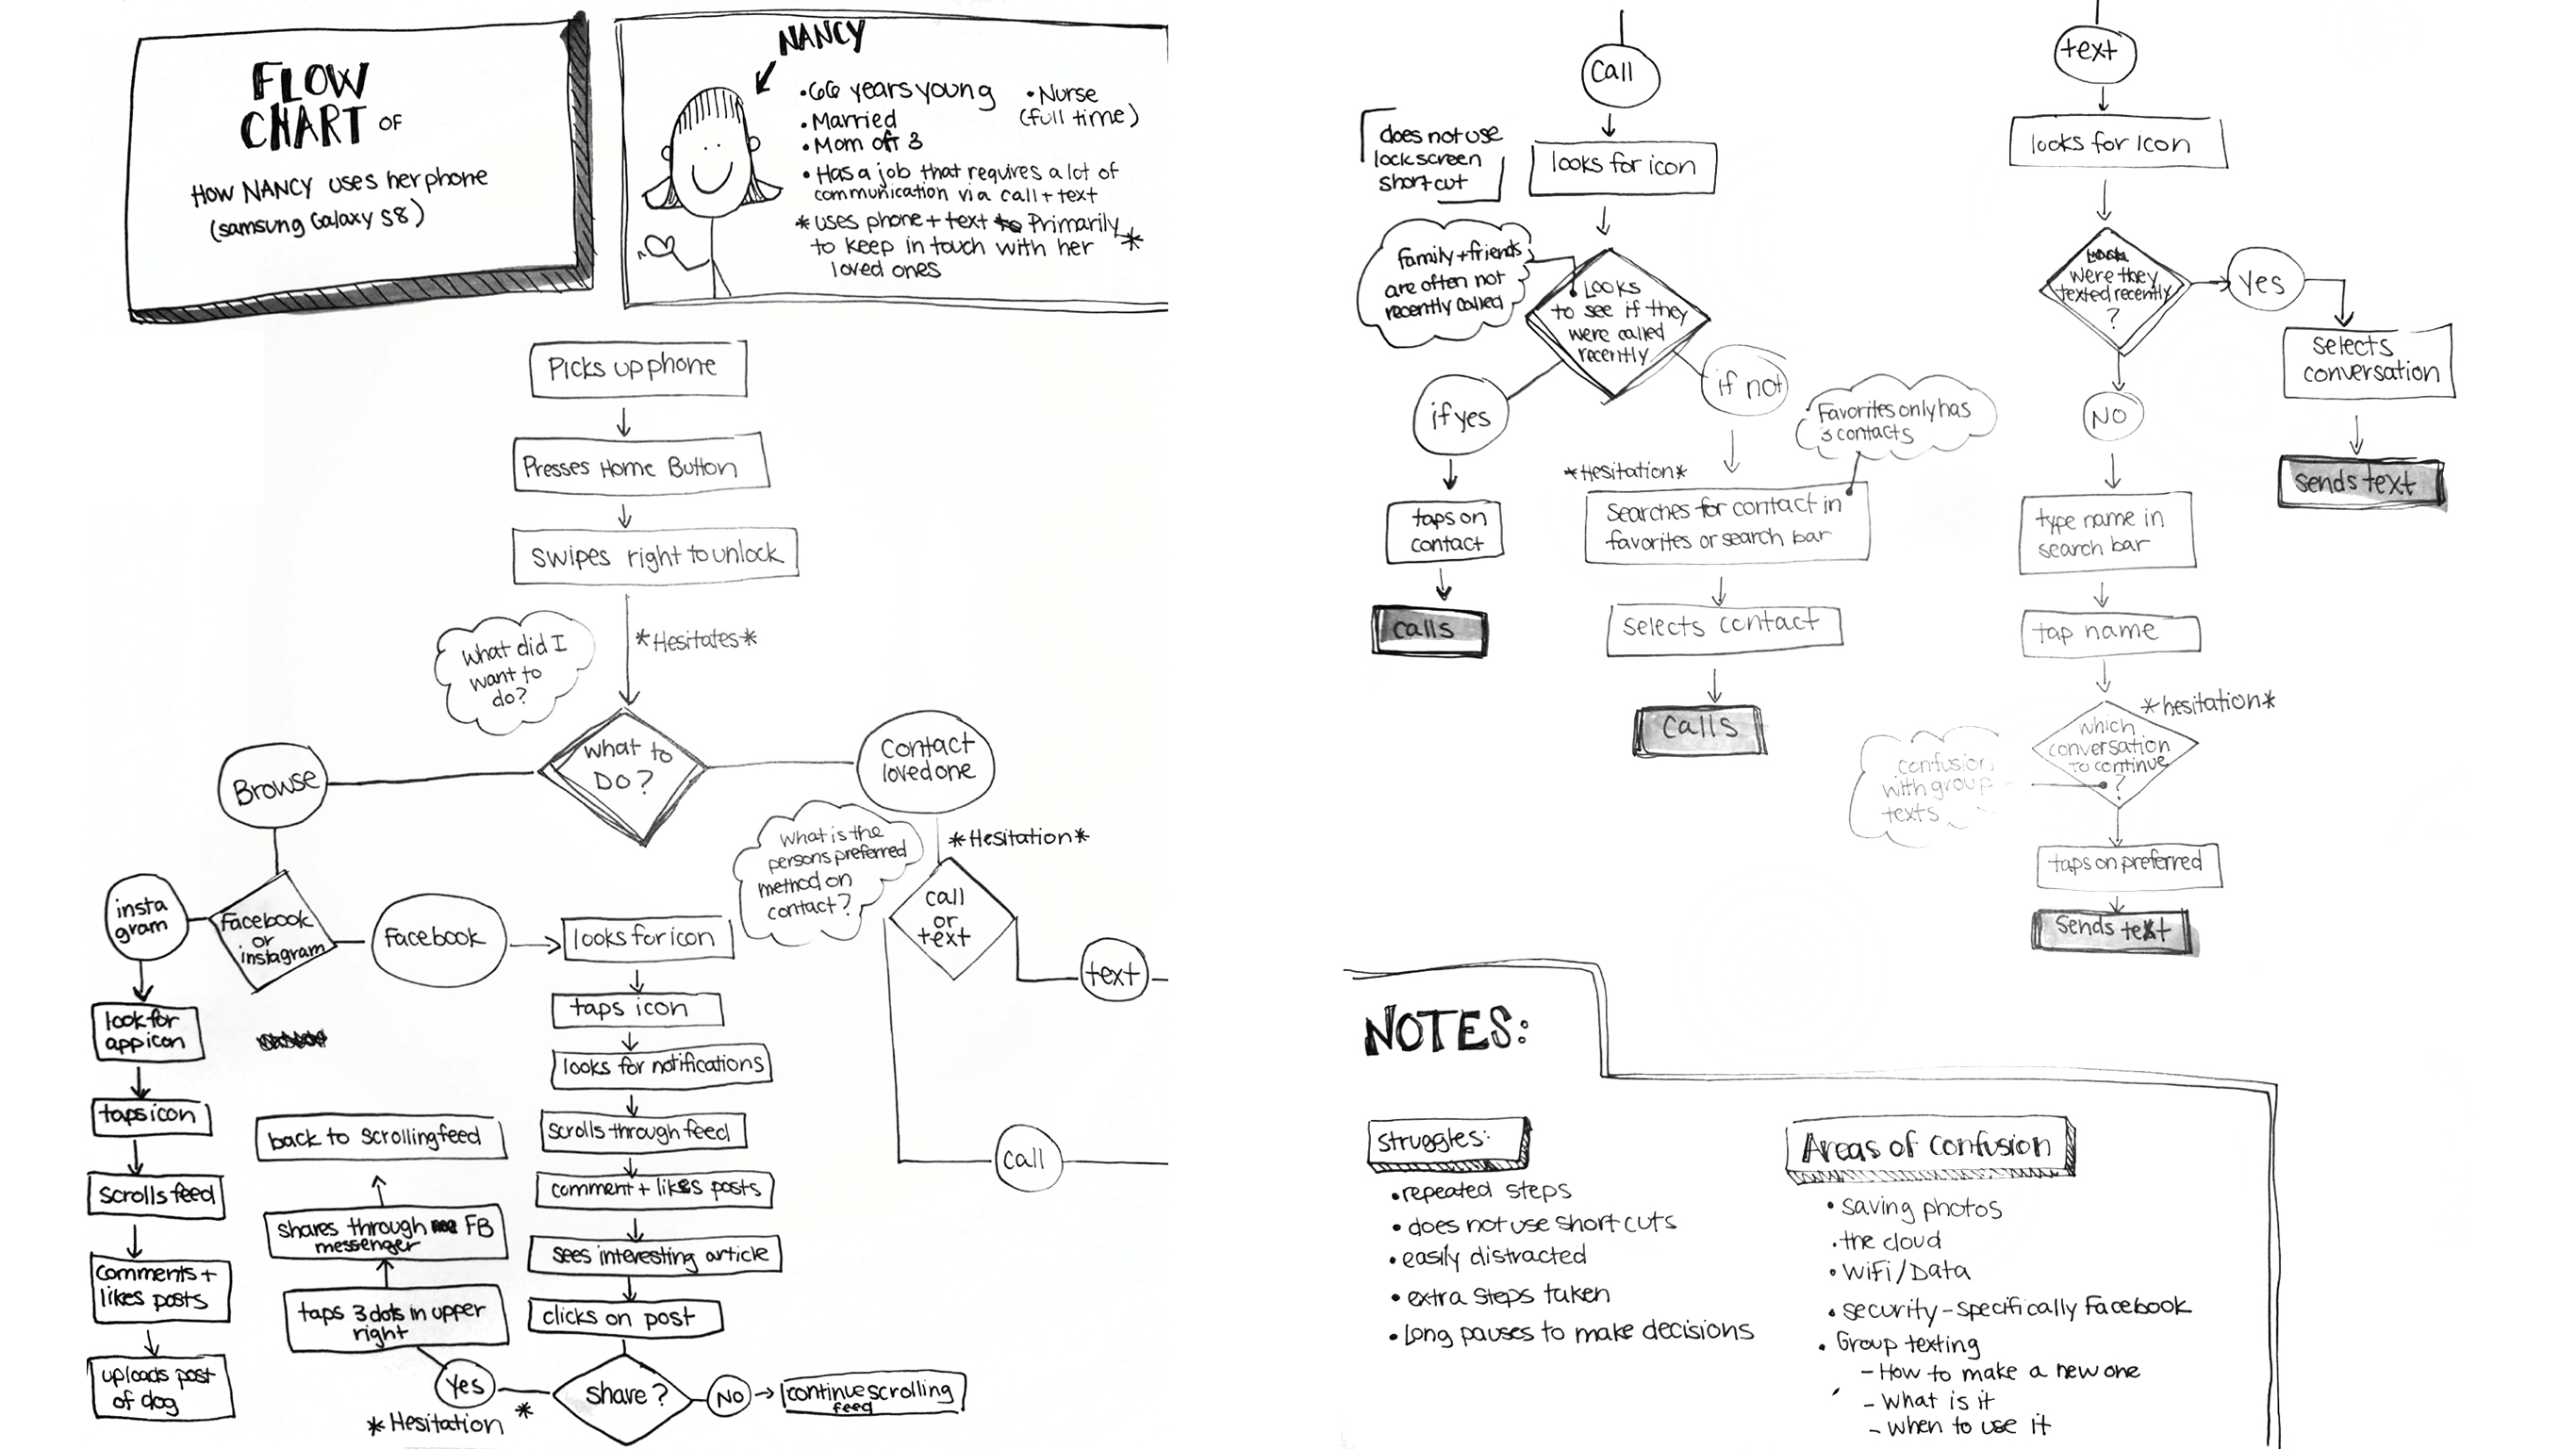 FLOW
CHART OF
HOW NANCY uses her phone
(samsung Galaxy S8)
NANCY
• 66 years young
• Married
• Mom of 3
• Nurse
(full time)
• Has a job that requires a lot of
communication via call + text
* uses phone + text Primarily *
to keep in touch with her
loved ones
Picks up phone
Presses Home Button
swipes right to unlock
*Hesitates*
what did I
want to
do?
what to
DO?
Browse
Contact
loved one
what is the
persons preferred
method on
contact?
*Hesitation*
call
or
text
text
call
insta
gram
Facebook
or
instagram
Facebook
looks for icon
taps icon
looks for notifications
scrolls through feed
comment + likes posts
sees interesting article
clicks on post
share?
NO
continue scrolling
feed
yes
*Hesitation *
taps 3 dots in upper
right
shares through FB
messenger
back to scrolling feed
look for
app icon
taps icon
scrolls feed
comments +
likes posts
uploads post
of dog
Call
does not use
lock screen
short cut
looks for icon
Family + friends
are often not
recently called
Looks
to see if they
were called
recently
if yes
taps on
contact
calls
if not
*Hesitation*
Favorites only has
3 contacts
searches for contact in
favorites or search bar
selects contact
calls
text
looks for icon
were they
texted recently
?
yes
selects
conversation
sends text
NO
type name in
search bar
tap name
*hesitation*
which
conversation
to continue
?
confusion
with group
texts
taps on preferred
sends text
NOTES:
struggles:
• repeated steps
• does not use short cuts
• easily distracted
• extra steps taken
• Long pauses to make decisions
Areas of confusion
• saving photos
• the cloud
• WiFi/Data
• security - specifically Facebook
• Group texting
- How to make a new one
- What is it
- when to use it